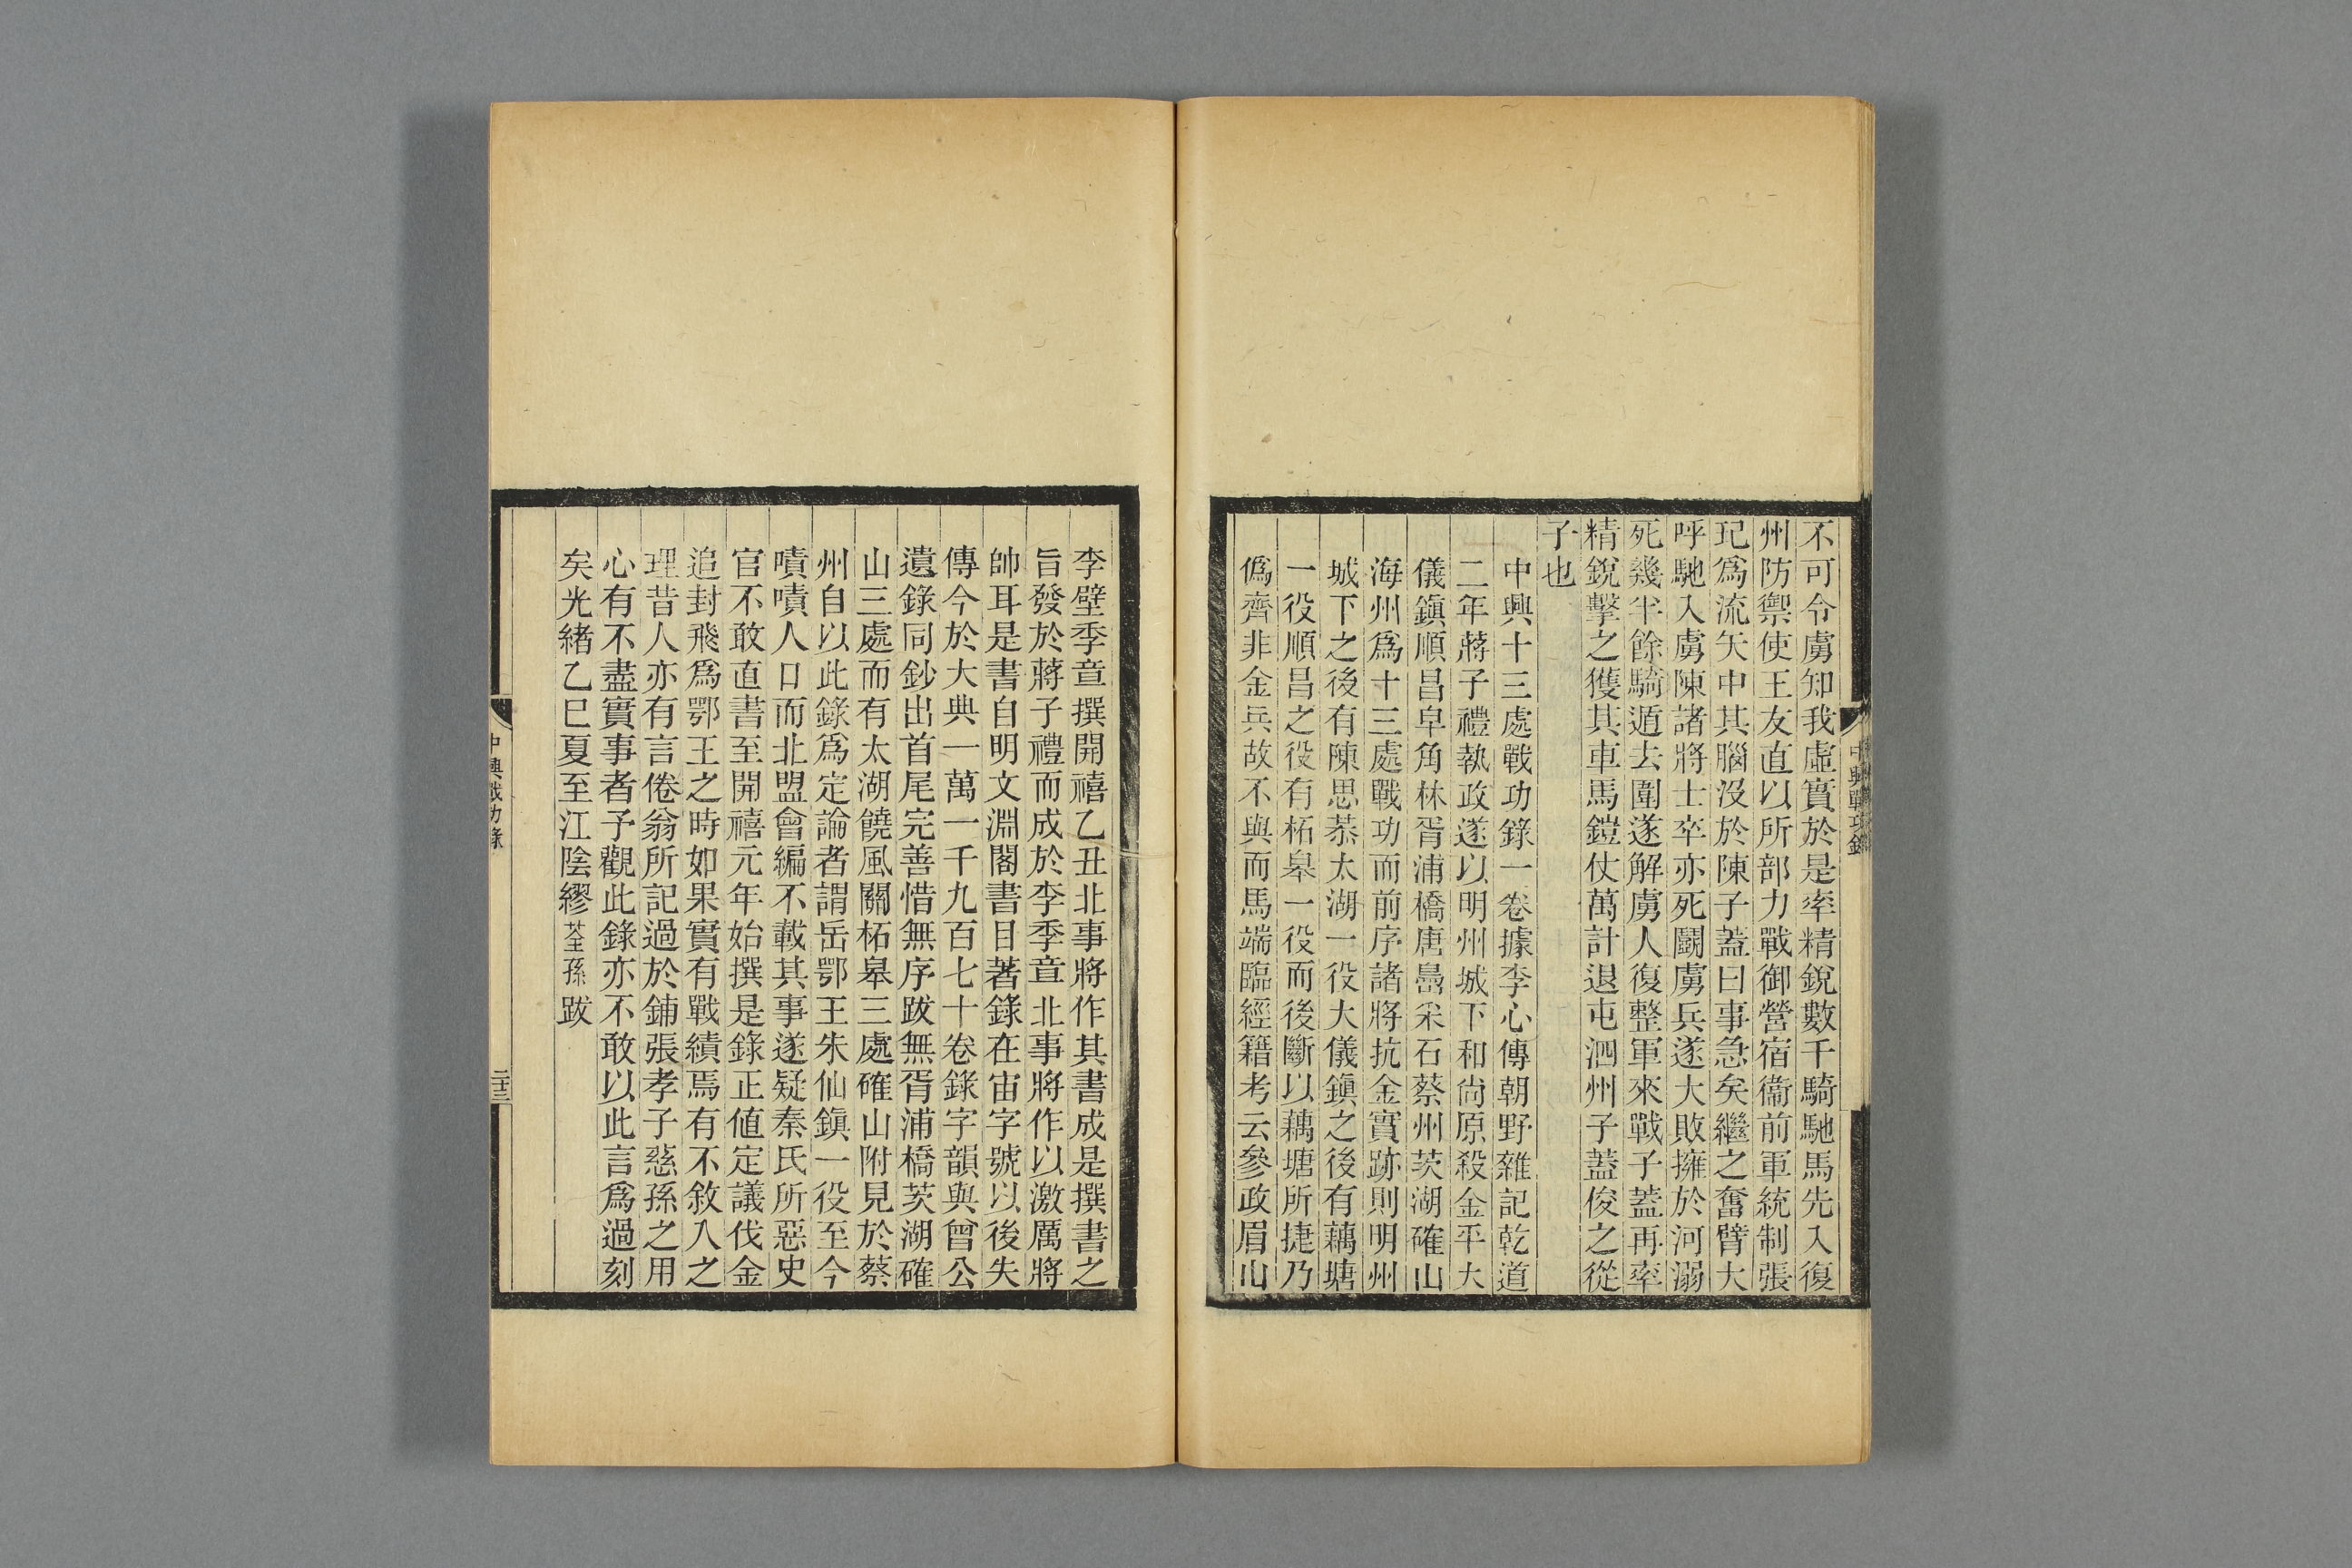 不可令虜知我虛實於是率精銳數千騎馳馬先入復
州防禦使王友直以所部力戰御營宿衞前軍統制張
玘爲流矢中其腦沒於陳子蓋曰事急矣繼之奮臂大
呼馳入虜陳諸將士卒亦死鬭虜兵遂大敗擁於河溺
死幾半餘騎遁去圍遂解虜人復整軍來戰子蓋再率
精銳擊之獲其車馬鎧仗萬計退屯泗州子蓋俊之從
子也
中興十三處戰功錄一卷據李心傳朝野雜記乾道
二年蔣子禮執政遂以明州城下和尙原殺金平大
儀鎭順昌皁角林胥浦橋唐島采石蔡州茨湖確山
海州爲十三處戰功而前序諸將抗金實跡則明州
城下之後有陳思恭太湖一役大儀鎭之後有藕塘
一役順昌之役有柘皋一役而後斷以藕塘所捷乃
僞齊非金兵故不與而馬端臨經籍考云參政眉山
中興戰功錄
李壁季章撰開禧乙丑北事將作其書成是撰書之
旨發於蔣子禮而成於李季章北事將作以激厲將
帥耳是書自明文淵閣書目著錄在宙字號以後失
傳今於大典一萬一千九百七十卷錄字韻與曾公
遺錄同鈔出首尾完善惜無序跋無胥浦橋茨湖確
山三處而有太湖饒風關柘皋三處確山附見於蔡
州自以此錄爲定論者謂岳鄂王朱仙鎭一役至今
嘖嘖人口而北盟會編不載其事遂疑秦氏所惡史
官不敢直書至開禧元年始撰是錄正値定議伐金
追封飛爲鄂王之時如果實有戰績焉有不敘入之
理昔人亦有言倦翁所記過於鋪張孝子慈孫之用
心有不盡實事者予觀此錄亦不敢以此言爲過刻
矣光緒乙巳夏至江陰繆荃孫跋
中興戰功錄
二十三